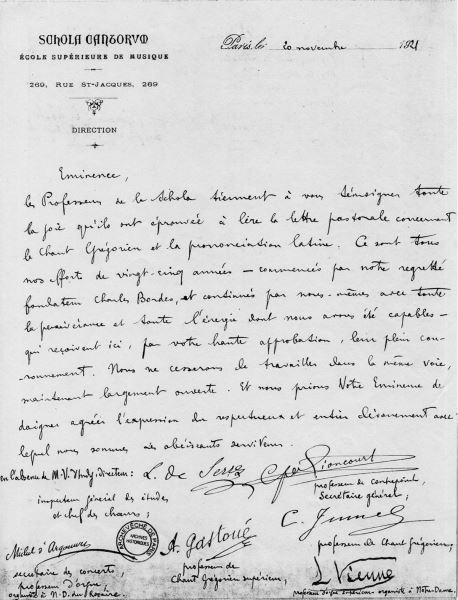 SCHOLA CANTORVM
ÉCOLE SUPÉRIEURE DE MUSIQUE
269, RUE ST-JACQUES, 269
DIRECTION
Paris, le 20 novembre 1921
Eminence,
les Professeurs de la Schola tiennent à vous témoigner toute
la joie qu'ils ont éprouvée à lire la lettre pastorale concernant
le Chant Grégorien et la prononciation latine. Ce sont tous
nos efforts de vingt-cinq années – commencés par notre regretté
fondateur Charles Bordes, et continués par nous-mêmes avec toute
la persévérance et toute l'énergie dont nous avons été capables –
qui reçoivent ici, par votre haute approbation, leur plein cou-
ronnement. Nous ne cesserons de travailler dans la même voie,
maintenant largement ouverte. Et nous prions Votre Eminence de
daigner agréer l'expression du respectueux et entier dévouement avec
lequel nous sommes ses obéissants serviteurs.
en l'absence de M. V. d'Indy, directeur : L. de Serres
inspecteur général des études
et chef des chœurs ;
professeur de contrepoint,
Secrétaire général ;
professeur de Chant Grégorien ;
Michel d'Argoeuvre
secrétaire de concerts,
professeur d'orgue,
organiste à N. D. du Rosaire.
ARCHEVÊCHÉ DE PARIS
ARCHIVES HISTORIQUES
A. Gastoué
professeur de
Chant Grégorien supérieur ;
L Vierne
professeur d'orgue supérieur – organiste à Notre-Dame.